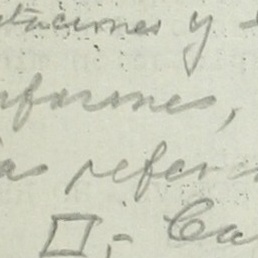 taciones y
nformes,
as refer
□.- Ca